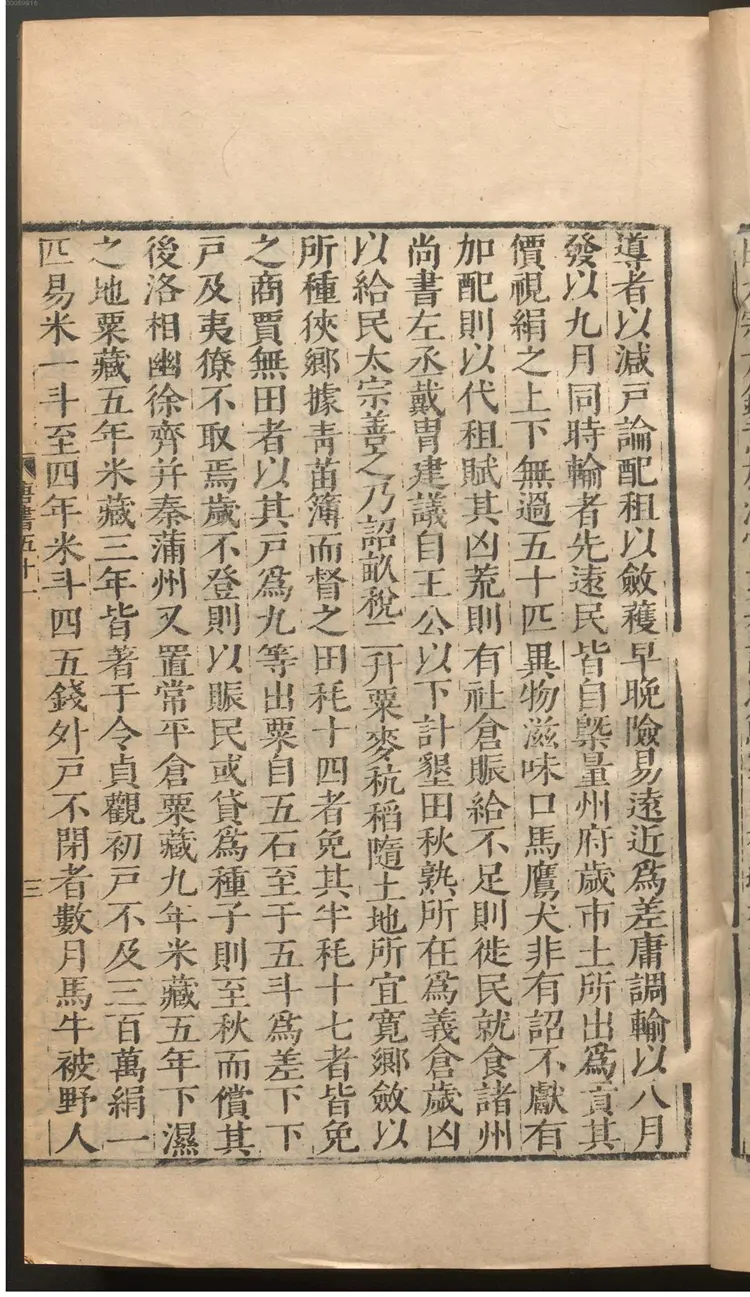 導者以減戸論配租以斂穫早晚險易遠近爲差庸調輸以八月
發以九月同時輸者先遠民皆自槩量州府歲市土所出爲貢其
價視絹之上下無過五十匹異物滋味口馬鷹犬非有詔不獻有
加配則以代租賦其凶荒則有社倉賑給不足則徙民就食諸州
尚書左丞戴胄建議自王公以下計墾田秋熟所在爲義倉歲凶
以給民太宗善之乃詔畝稅二升粟麥秔稻隨土地所宜寛鄉斂以
所種狹鄉據靑苗簿而督之田耗十四者免其半耗十七者皆免
之商賈無田者以其戸爲九等出粟自五石至于五斗爲差下下
戸及夷獠不取焉歲不登則以賑民或貸爲種子則至秋而償其
後洛相幽徐齊幷秦蒲州又置常平倉粟藏九年米藏五年下濕
之地粟藏五年米藏三年皆著于令貞觀初戸不及三百萬絹一
匹易米一斗至四年米斗四五錢外戸不閉者數月馬牛被野人
唐書五十一
三
00080915